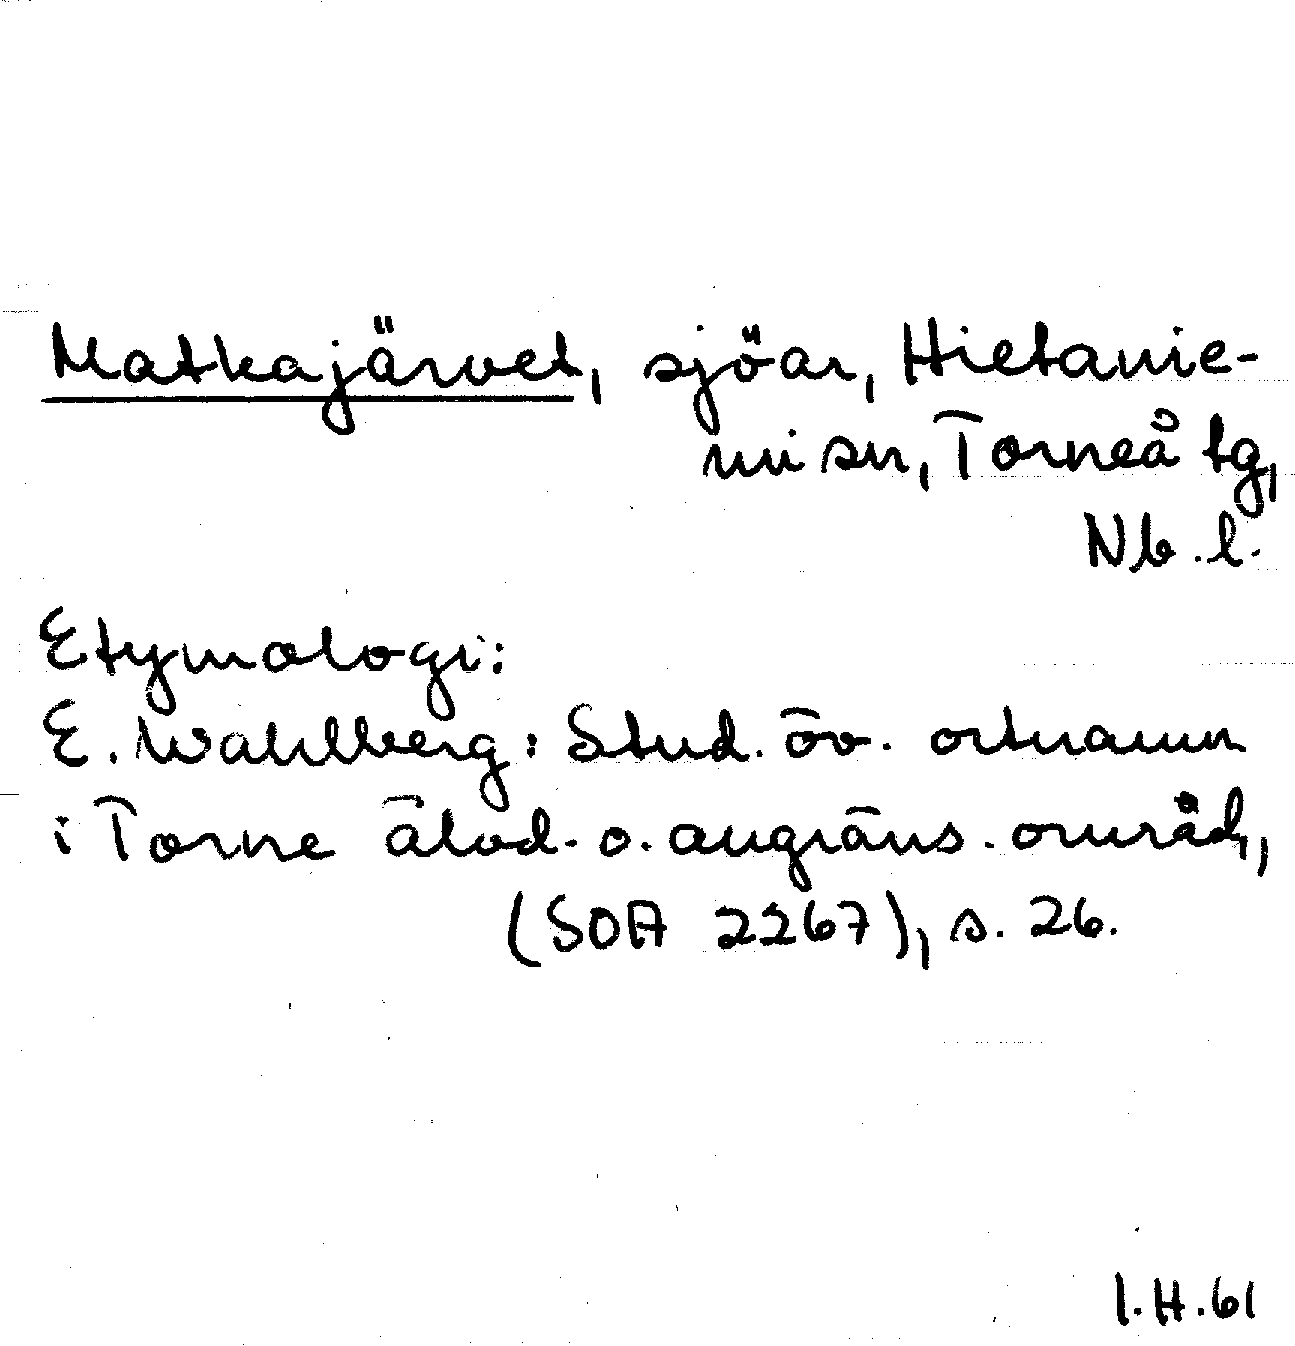 Matkajärvet, sjöar, Hietanie-
mi sn, Torneå tg,
Nb. l.
Etymologi:
E. Wahlberg: Stud. öv. ortnamn
i Torne älvd. o. angräns. områd.,
(SOA 2267), s. 26.
I.H.61